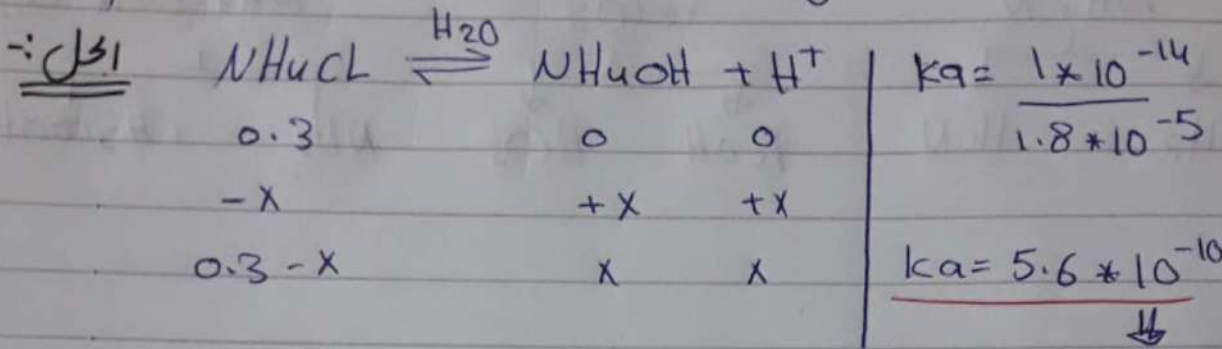 الحل :-
NH4CL ⇌ NH4OH + H+
H2O
0.3 0 0
-X +X +X
0.3-X X X
Ka= 1*10^-14
1.8*10^-5
Ka= 5.6*10^-10